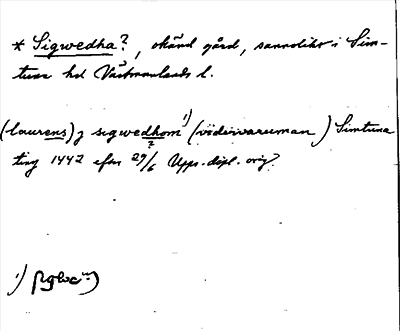 * Sigwedha?, okänd gård, sannolikt i Sim-
tuna hd Västmanlands l.
(laurens) j sigwedhom 1) (vidervaruman) Simtuna
ting 1442 efter 29/6 Upps. dipl. orig?
1)